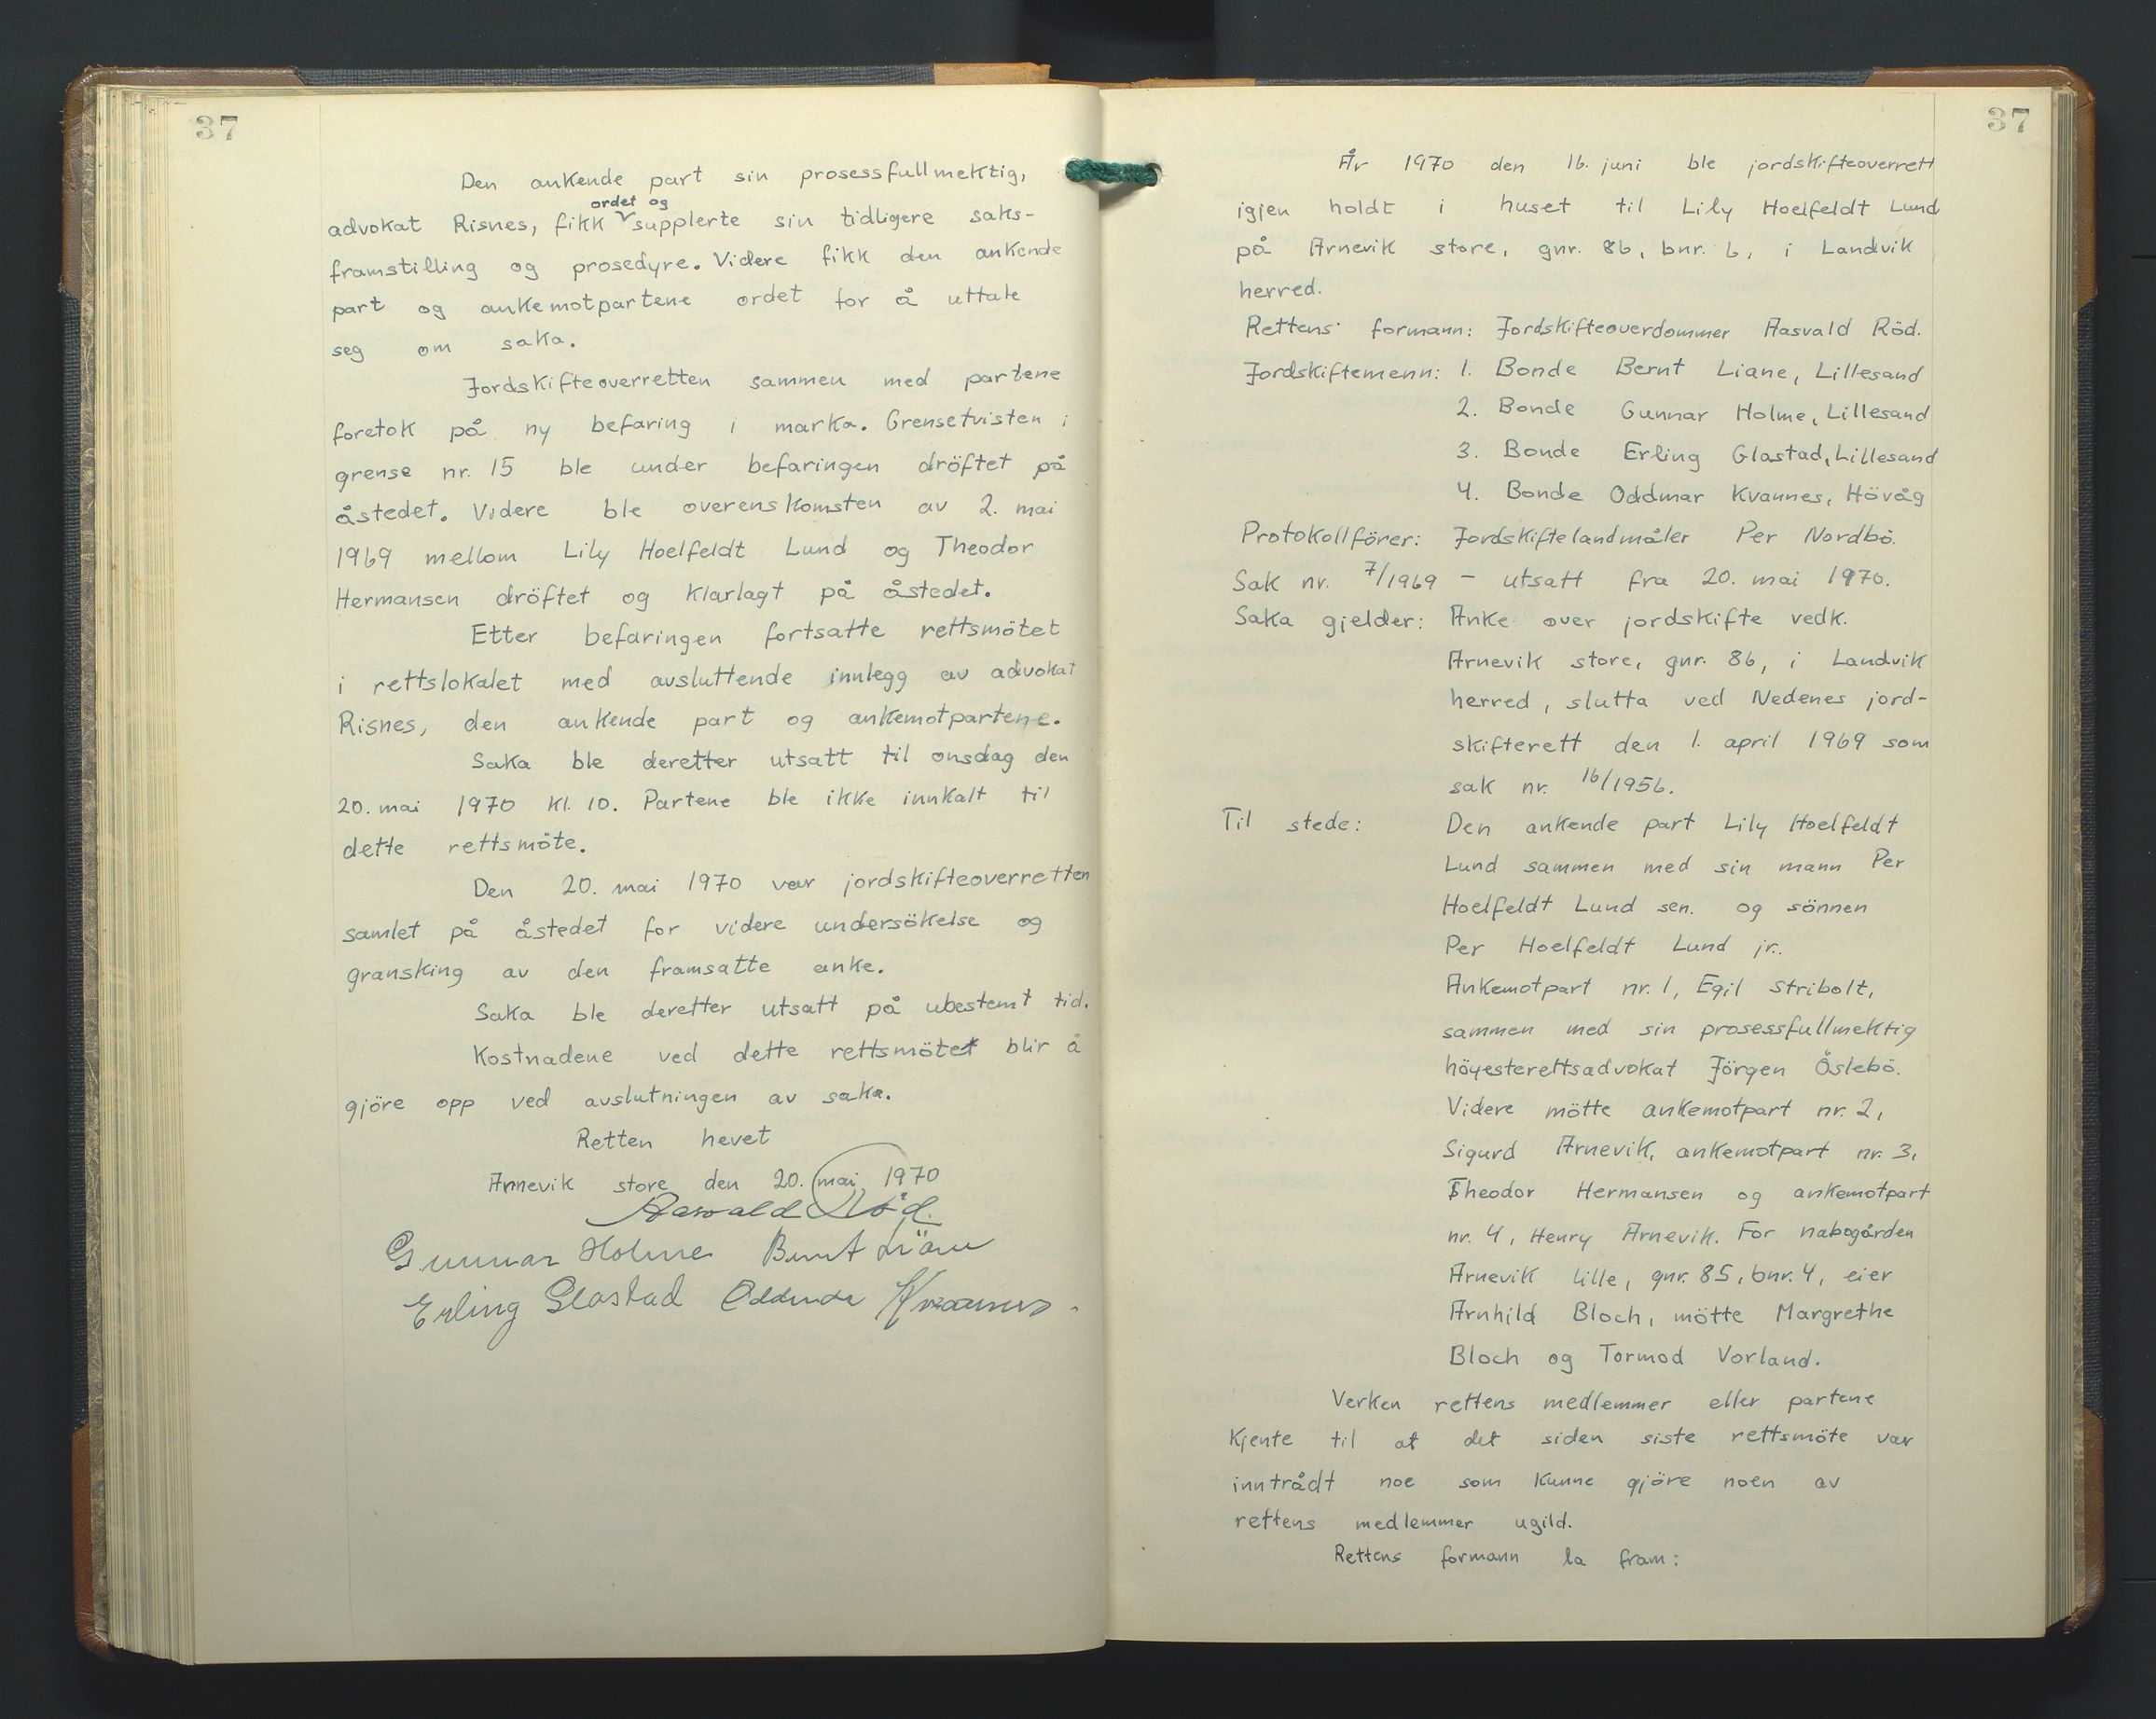 37
Den ankende part sin prosessfullmektig,
ordet og
advokat Risnes, fikk supplerte sin tidligere saks-
framstilling og prosedyre. Videre fikk den ankende
part og ankemotpartene ordet for å uttale
seg om saka.
Jordskifteoverretten sammen med partene
foretok på ny befaring i marka. Grensetvisten i
grense nr. 15 ble under befaringen dröftet på
åstedet. Videre ble overenskomsten av 2. mai
1969 mellom Lily Hoelfeldt Lund og Theodor
Hermansen dröftet og klarlagt på åstedet.
Etter befaringen fortsatte rettsmötet
i rettslokalet med avsluttende innlegg av advokat
Risnes, den ankende part og ankemotpartene.
Saka ble deretter utsatt til onsdag den
20. mai 1970 kl. 10. Partene ble ikke innkalt til
dette rettsmöte.
Den 20. mai 1970 var jordskifteoverretten
samlet på åstedet for videre undersökelse og
gransking av den framsatte anke.
Saka ble deretter utsatt på ubestemt tid.
Kostnadene ved dette rettsmötet blir å
gjöre opp ved avslutningen av saka.
Retten hevet
Arnevik store den 20. mai 1970
Aasvald Röd.
Gunnar Holme Bernt Liane
Erling Glastad Oddmar Kvannes.
37
År 1970 den 16. juni ble jordskifteoverrett
igjen holdt i huset til Lily Hoelfeldt Lund
på Arnevik store, gnr. 86, bnr. 6, i Landvik
herred.
Rettens formann: Jordskifteoverdommer Aasvald Röd.
Jordskiftemenn: 1. Bonde Bernt Liane, Lillesand
2. Bonde Gunnar Holme, Lillesand
3. Bonde Erling Glastad, Lillesand
4. Bonde Oddmar Kvannes, Hövåg
Protokollförer: Jordskiftelandmåler Per Nordbö.
Sak nr. 7/1969 - utsatt fra 20. mai 1970.
Saka gjelder: Anke over jordskifte vedk.
Arnevik store, gnr. 86, i Landvik
herred, slutta ved Nedenes jord-
skifterett den 1. april 1969 som
sak nr. 16/1956.
Til stede: Den ankende part Lily Hoelfeldt
Lund sammen med sin mann Per
Hoelfeldt Lund sen. og sönnen
Per Hoelfeldt Lund jr..
Ankemotpart nr. 1, Egil Stribolt,
sammen med sin prosessfullmektig
höyesterettsadvokat Jörgen Öslebö.
Videre mötte ankemotpart nr. 2,
Sigurd Arnevik, ankemotpart nr. 3,
Theodor Hermansen og ankemotpart
nr. 4, Henry Arnevik. For nabogården
Arnevik lille, gnr. 85, bnr. 4, eier
Arnhild Bloch, mötte Margrethe
Bloch og Tormod Vorland.
Verken rettens medlemmer eller partene
kjente til at det siden siste rettsmöte var
inntrådt noe som kunne gjöre noen av
rettens medlemmer ugild.
Rettens formann la fram: